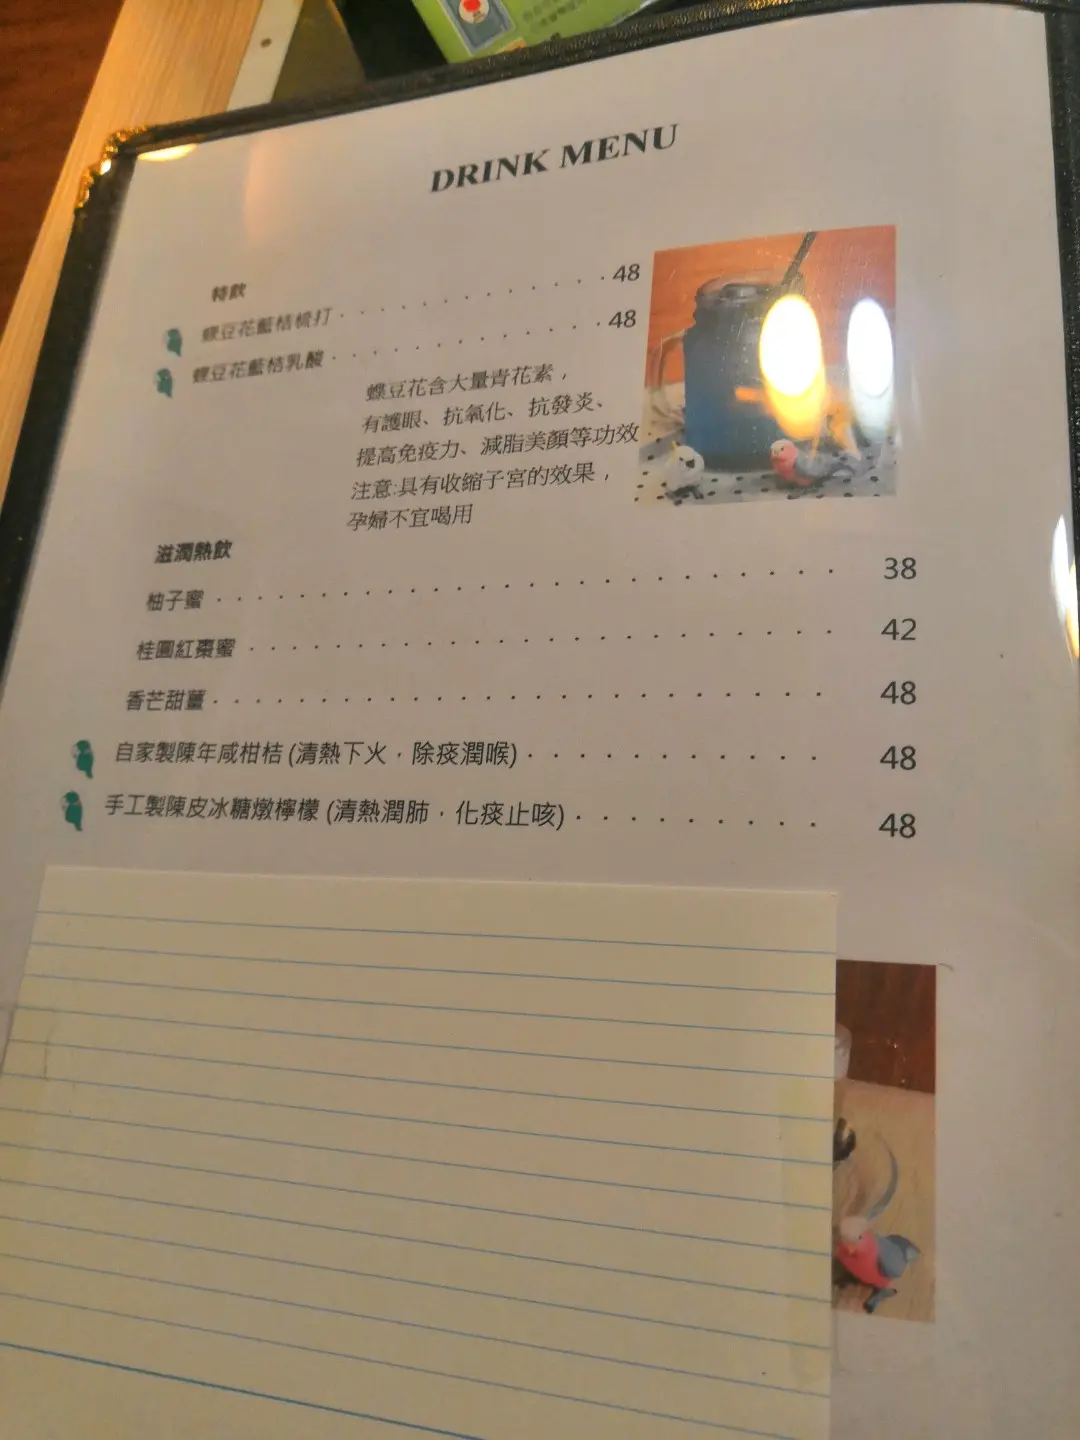 DRINK MENU
特飲
蝶豆花藍桔梳打 48
蝶豆花藍桔乳酸 48
蝶豆花含大量青花素，
有護眼、抗氧化、抗發炎、
提高免疫力、減脂美顏等功效
注意:具有收縮子宮的效果，
孕婦不宜喝用
滋潤熱飲
柚子蜜 38
桂圓紅棗蜜 42
香芒甜薑 48
自家製陳年咸柑桔 (清熱下火，除痰潤喉) 48
手工製陳皮冰糖燉檸檬 (清熱潤肺，化痰止咳) 48